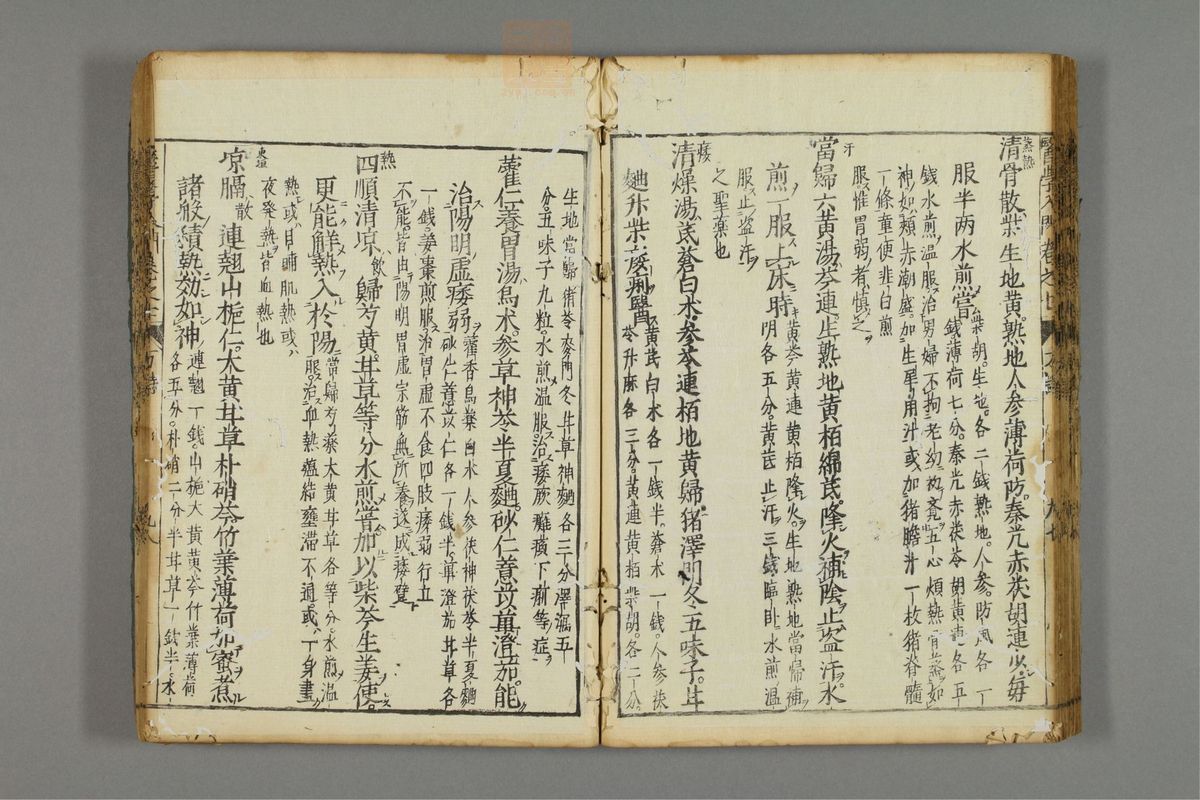 清骨散柴生地黄熟地人参薄荷防秦艽赤茯胡連少毎
服半两水煎嘗
柴胡生地各二錢熟地人参防風各一
錢薄荷七分秦艽赤茯苓胡黄連各五
錢水煎温服治男婦不拘老幼
五心煩熱骨蒸如
神如頬赤潮盛加
用汁或加猪膽汁一枚猪脊髓
一條童便韭白煎
服惟胃弱者慎之
汗
當歸六黄湯芩連生熟地黄栢綿芪隆火補陰止盗汗水
煎一服上床時
黄芩黄連黄栢隆火生地熟地當帰補
明各五分黄芪止汗三錢臨卧水煎温
服止盗汗
之聖薬也
痿
清燥湯芪蒼白术参苓連栢地黄歸猪澤門冬五味子甘
麹升柴
黄芪白术各一錢半蒼术一錢人参茯
苓升麻各三分黄連黄栢柴胡各二分
生地當歸猪苓麥門冬甘草神麹各三分澤瀉五
分五味子九粒水煎温服治痿厥癱瘓下痢等症
藿仁養胃湯烏术参草神苓半夏麹砂仁薏苡蓽澄茄能
治陽明虚痿弱
藿香烏薬白术人参茯神茯苓半夏麹
砂仁薏苡仁各一錢半蓽澄茄甘草各
一錢姜棗煎服治胃虚不食四肢痿弱行立
不能皆由陽明胃虚宗筋無所養遂成痿躄
熱
四順清凉飲歸芍黄甘草等分水煎嘗加以柴芩生姜使
更能解熱入於陽
當歸芍薬大黄甘草各等分水煎温
服治血熱蘊結壅滞不通或一身晝
熱或日晡肌熱或
夜発熱皆血熱也
凉膈散連翹山梔仁大黄甘草朴硝芩竹葉薄荷加蜜煮
諸般積熱効如神
連翹一錢山梔大黄黄芩竹葉薄荷
各五分朴硝二分半甘草一錢半水